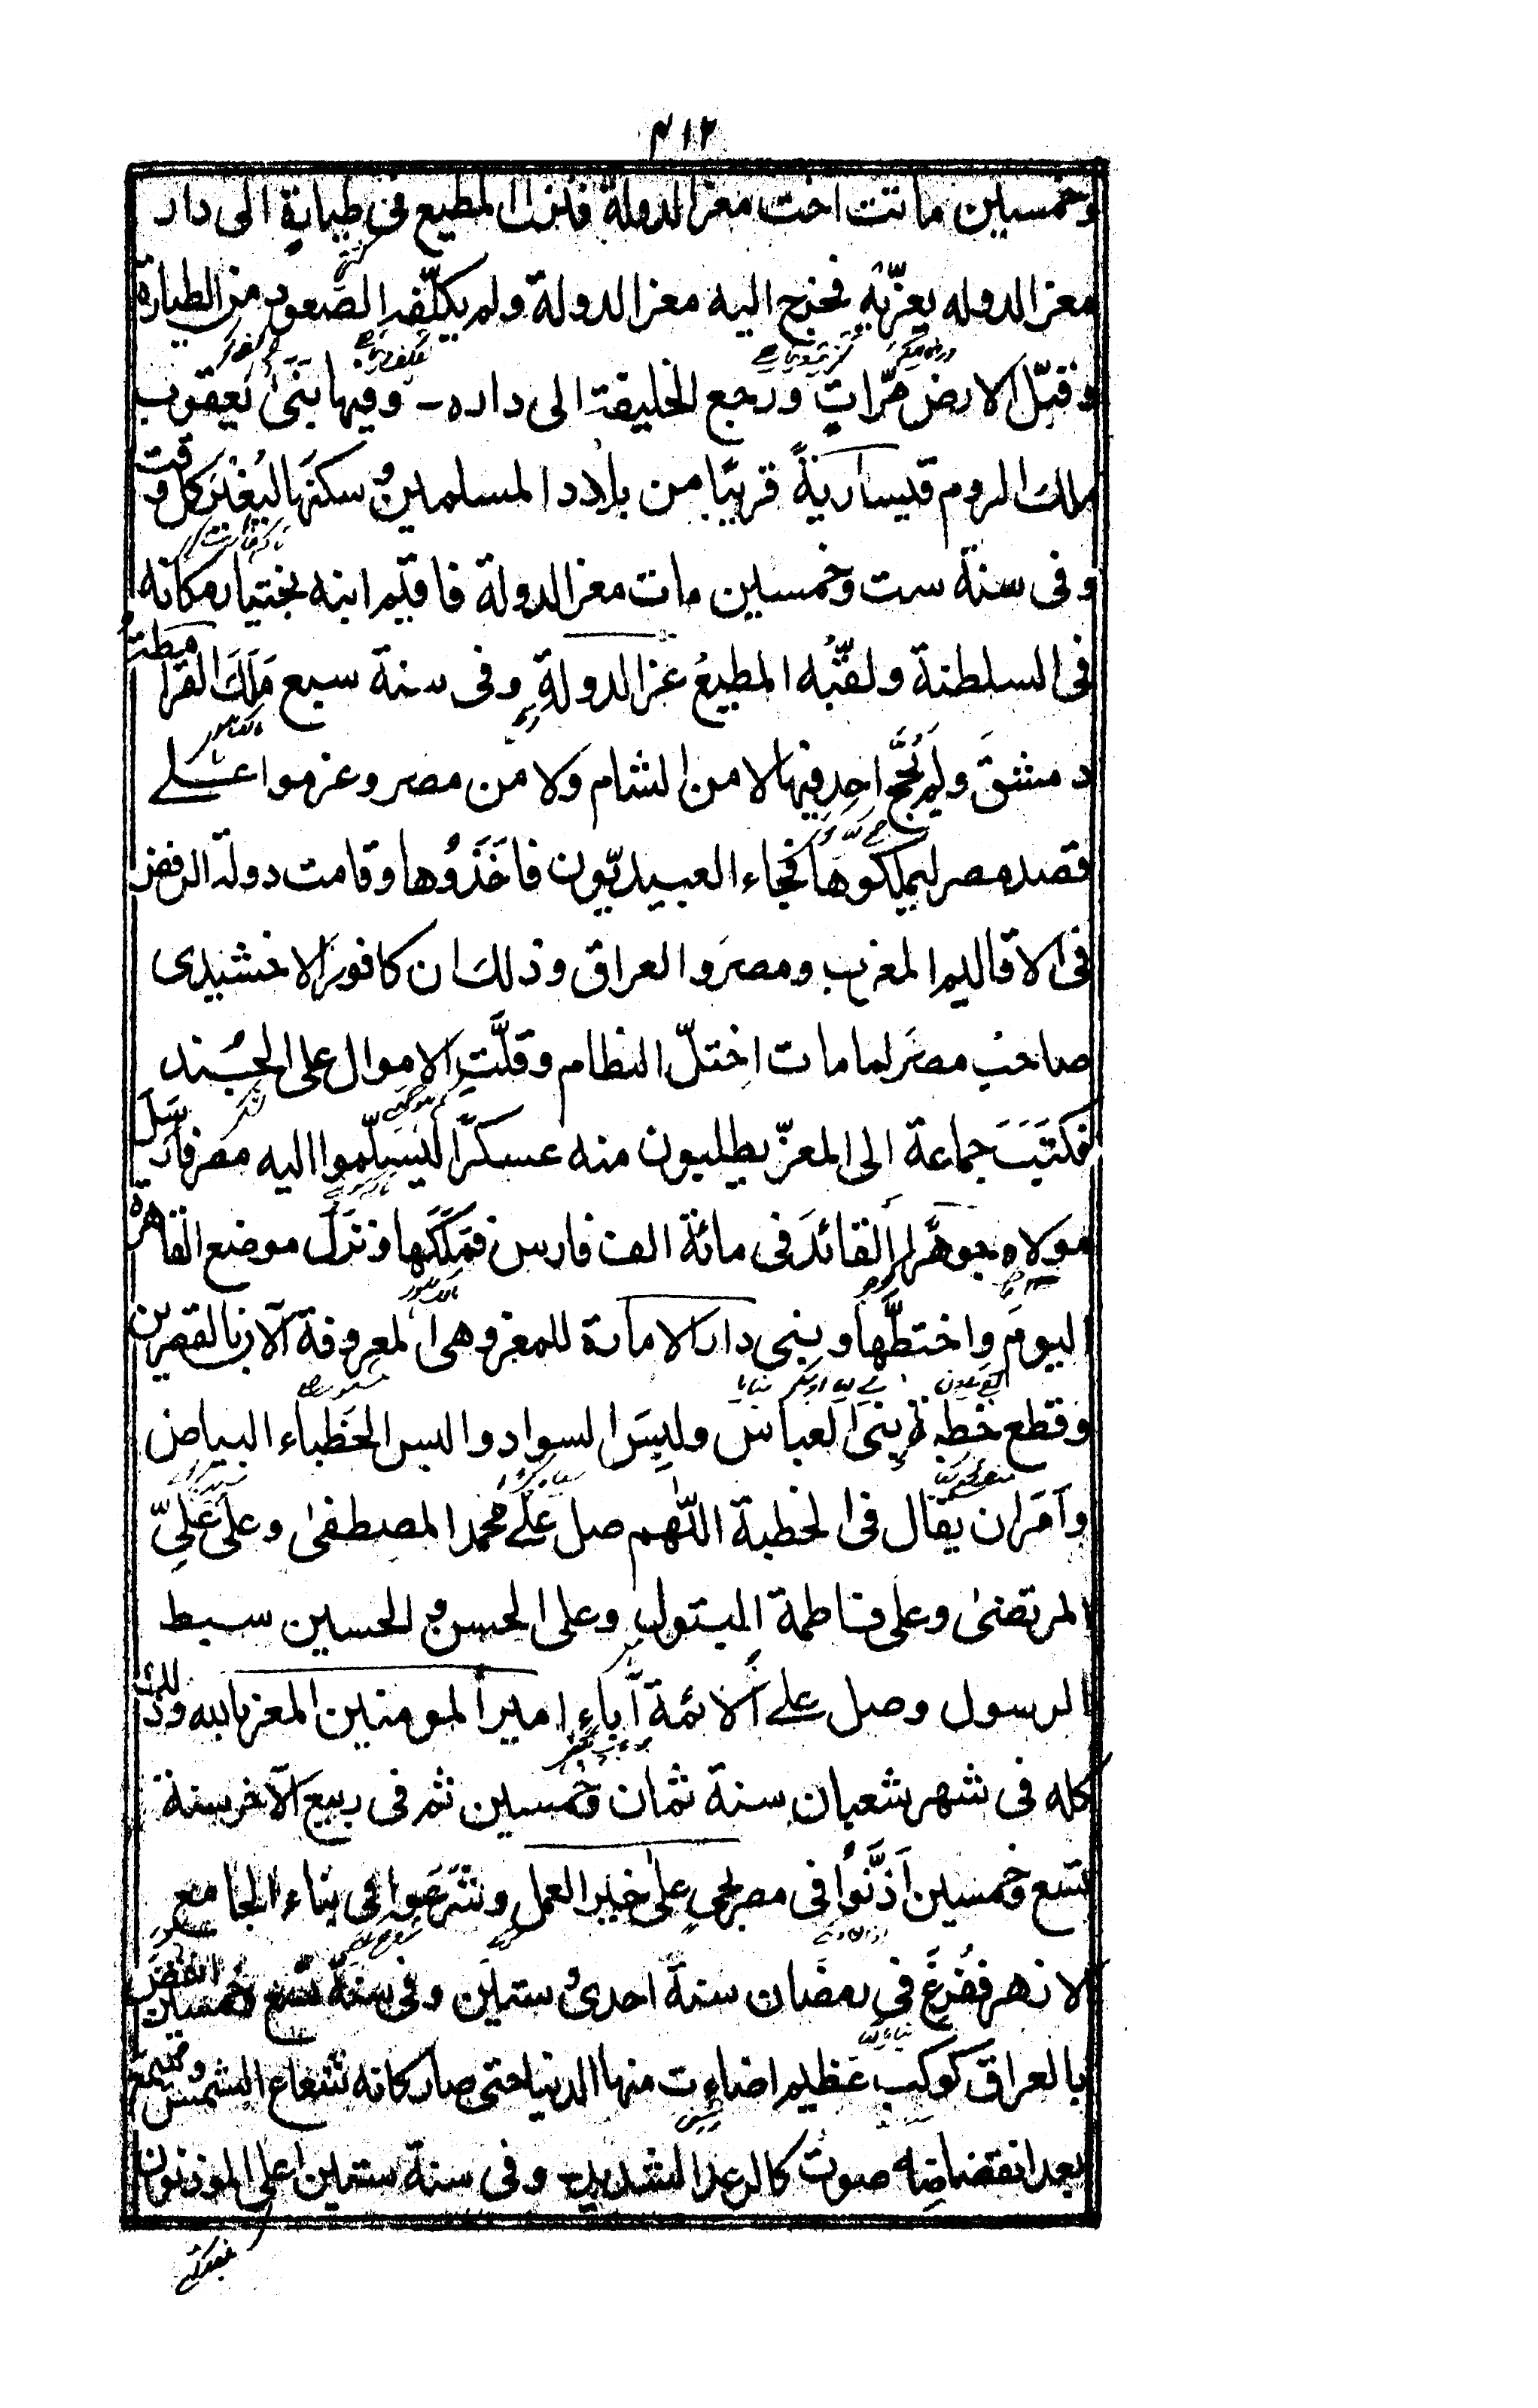 ٤١٢
وخمسين ماتت اخت معز الدولة فنزل المطيع فى طيارة الى دار
معز الدوله يعزّيه فخرج اليه معز الدولة ولم يكلّفه الصعود من الطيارة
وقبّل الارض مرّاتٍ ورجع الخليفة الى داره - وفيها بَنَىٰ يعقوب
ملك الروم قيسارية قريبًا من بلاد المسلمين وسكنها ليُغْيِرَ كل وقت
وفى سنة ست وخمسين مات معز الدولة فاقيم ابنه بختيار مكانه
فى السلطنة ولقّبه المطيعُ عز الدولةِ وفى سنة سبع مَلَكَ القرامطة
دمشقَ ولم يَحُجَّ احد فيها لا من الشام ولا من مصر وعزموا علے
قصد مصر ليملكوها فجاء العبيديّون فاخَذُوها وقامت دولة الرفض
فى الاقاليم المغرب ومصر والعراق وذلك ان كافور الاخشيدى
صاحب مصر لما مات اختلّ النظام وقلَّتِ الاموال على الجُند
فكتَبَت جماعة الى المعزّ يطلبون منه عسكرًا ليسلّموا اليه مصر فارسل
مولاه جوهرًا القائدَ فى مائة الف فارس فمَلَكَها ونزَلَ موضع القاهرة
اليوم واختطَّها وبنى دار الامارة للمعز وهى المعروفة الآن بالقصرين
وقطع خطبة بنى العباس ولبسَ السواد والبس الخطباء البياض
وأمَرَ ان يقال فى الخطبة اللّٰهم صل علے محمد المصطفىٰ وعلى عَلِىّ
المرتضىٰ وعلى فاطمة البتول وعلى الحسن والحسين سبط
الرسول وصل علے الائمة آباء امير المومنين المعز بالله وذلك
كله فى شهر شعبان سنة ثمان وخمسين ثم فى ربيع الآخر سنة
تسع وخمسين اَذَّنُوا فى مصر بحى علىٰ خير العمل وشَرَعوا فى بناء الجامع
الازهر ففرغ فى رمضان سنة احدى وستين وفى سنة تسع وخمسين انقضّ
بالعراق كوكب عظيم اضاءت منها الدنيا حتى صار كانه شعاع الشمس وسمع
بعد انقضاضه صوت كالرعد الشديد وفى سنة ستين اعلى الموذنون